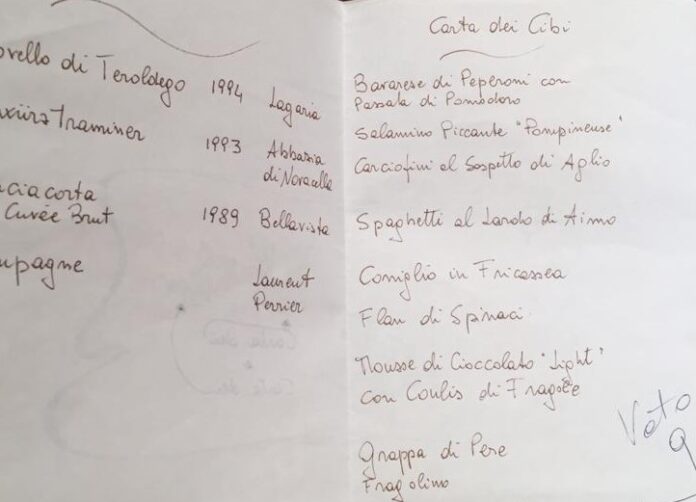 ovello di Teroldego 1994 Lagaria
Traminer 1993 Abbazia
di Novacella
ciacorta
Cuvée Brut 1989 Bellavista
mpagne Laurent
Perrier
Carta dei Cibi
Bavarese di Peperoni con
Passata di Pomodoro
Salamino Piccante "Pompineuse"
Carciofini al Sospetto di Aglio
Spaghetti al Lardo di Aimo
Coniglio in Fricassea
Flan di Spinaci
Mousse di Cioccolato "Light"
con Coulis di Fragole
Grappa di Pere
Fragolino
Voto
9